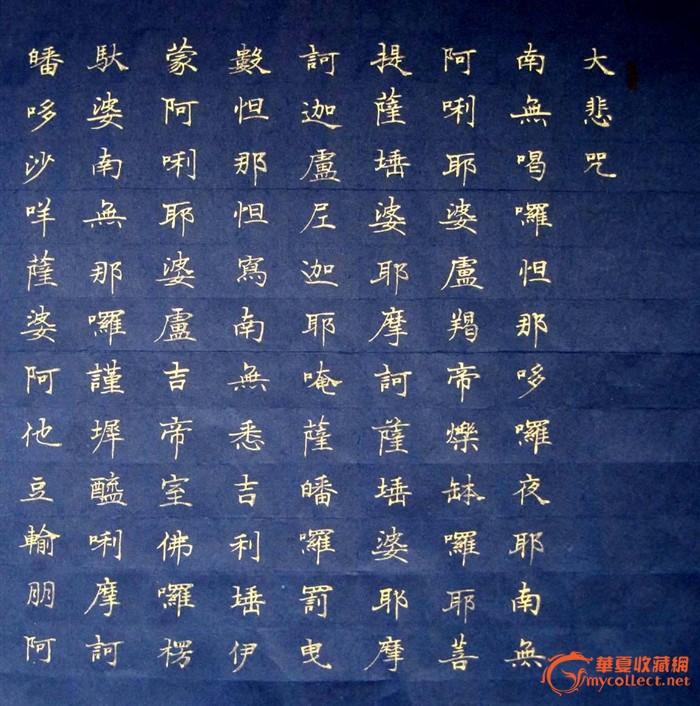 大悲咒
南無喝囉怛那哆囉夜耶南無
阿唎耶婆盧羯帝爍缽囉耶菩
提薩埵婆耶摩訶薩埵婆耶摩
訶迦盧尼迦耶唵薩皤囉罰曳
數怛那怛寫南無悉吉利埵伊
蒙阿唎耶婆盧吉帝室佛囉楞
馱婆南無那囉謹墀醯唎摩訶
皤哆沙咩薩婆阿他豆輸朋阿
華夏收藏網
mycollect.net